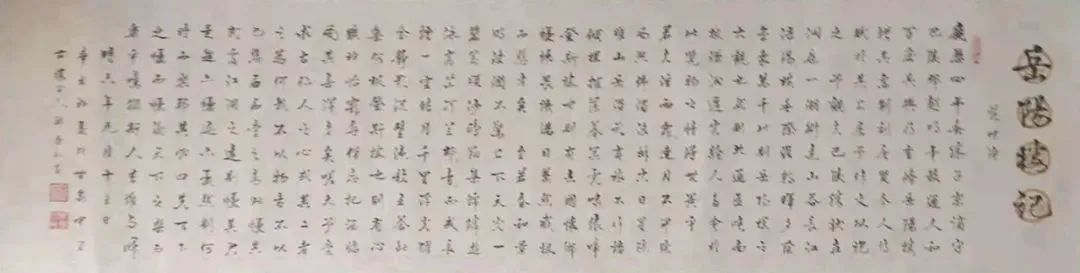 岳陽楼記
范仲淹
慶曆四年春滕子京謫守
巴陵郡越明年政通人和
百廢具興乃重修岳陽樓
增其舊制刻唐賢今人詩
賦於其上屬予作文以記
之 予觀夫巴陵勝狀在
洞庭一湖銜遠山吞長江
浩浩湯湯橫無際涯朝暉夕陰
氣象萬千此則岳陽樓之
大觀也然則北通巫峽南
極瀟湘遷客騷人多會於
此覽物之情得無異乎
若夫霪雨霏霏連月不開陰
風怒號濁浪排空日星隱
耀山岳潛形商旅不行檣
傾楫摧薄暮冥冥虎嘯猿啼
登斯樓也則有去國懷鄉
憂讒畏譏滿目蕭然感極
而悲者矣 至若春和景
明波瀾不驚上下天光一
碧萬頃沙鷗翔集錦鱗游
泳岸芷汀蘭郁郁青青而或長
煙一空皓月千里浮光躍
金靜影沉璧漁歌互答此
樂何極登斯樓也則有心
曠神怡寵辱偕忘把酒臨
風其喜洋洋者矣嗟夫予嘗
求古仁人之心或異二者
之為何哉不以物喜不以
己悲居廟堂之高則憂其
民處江湖之遠則憂其君
是進亦憂退亦憂然則何
時而樂耶其必曰先天下
之憂而憂後天下之樂而
樂乎噫微斯人吾誰與歸
時六年九月十五日